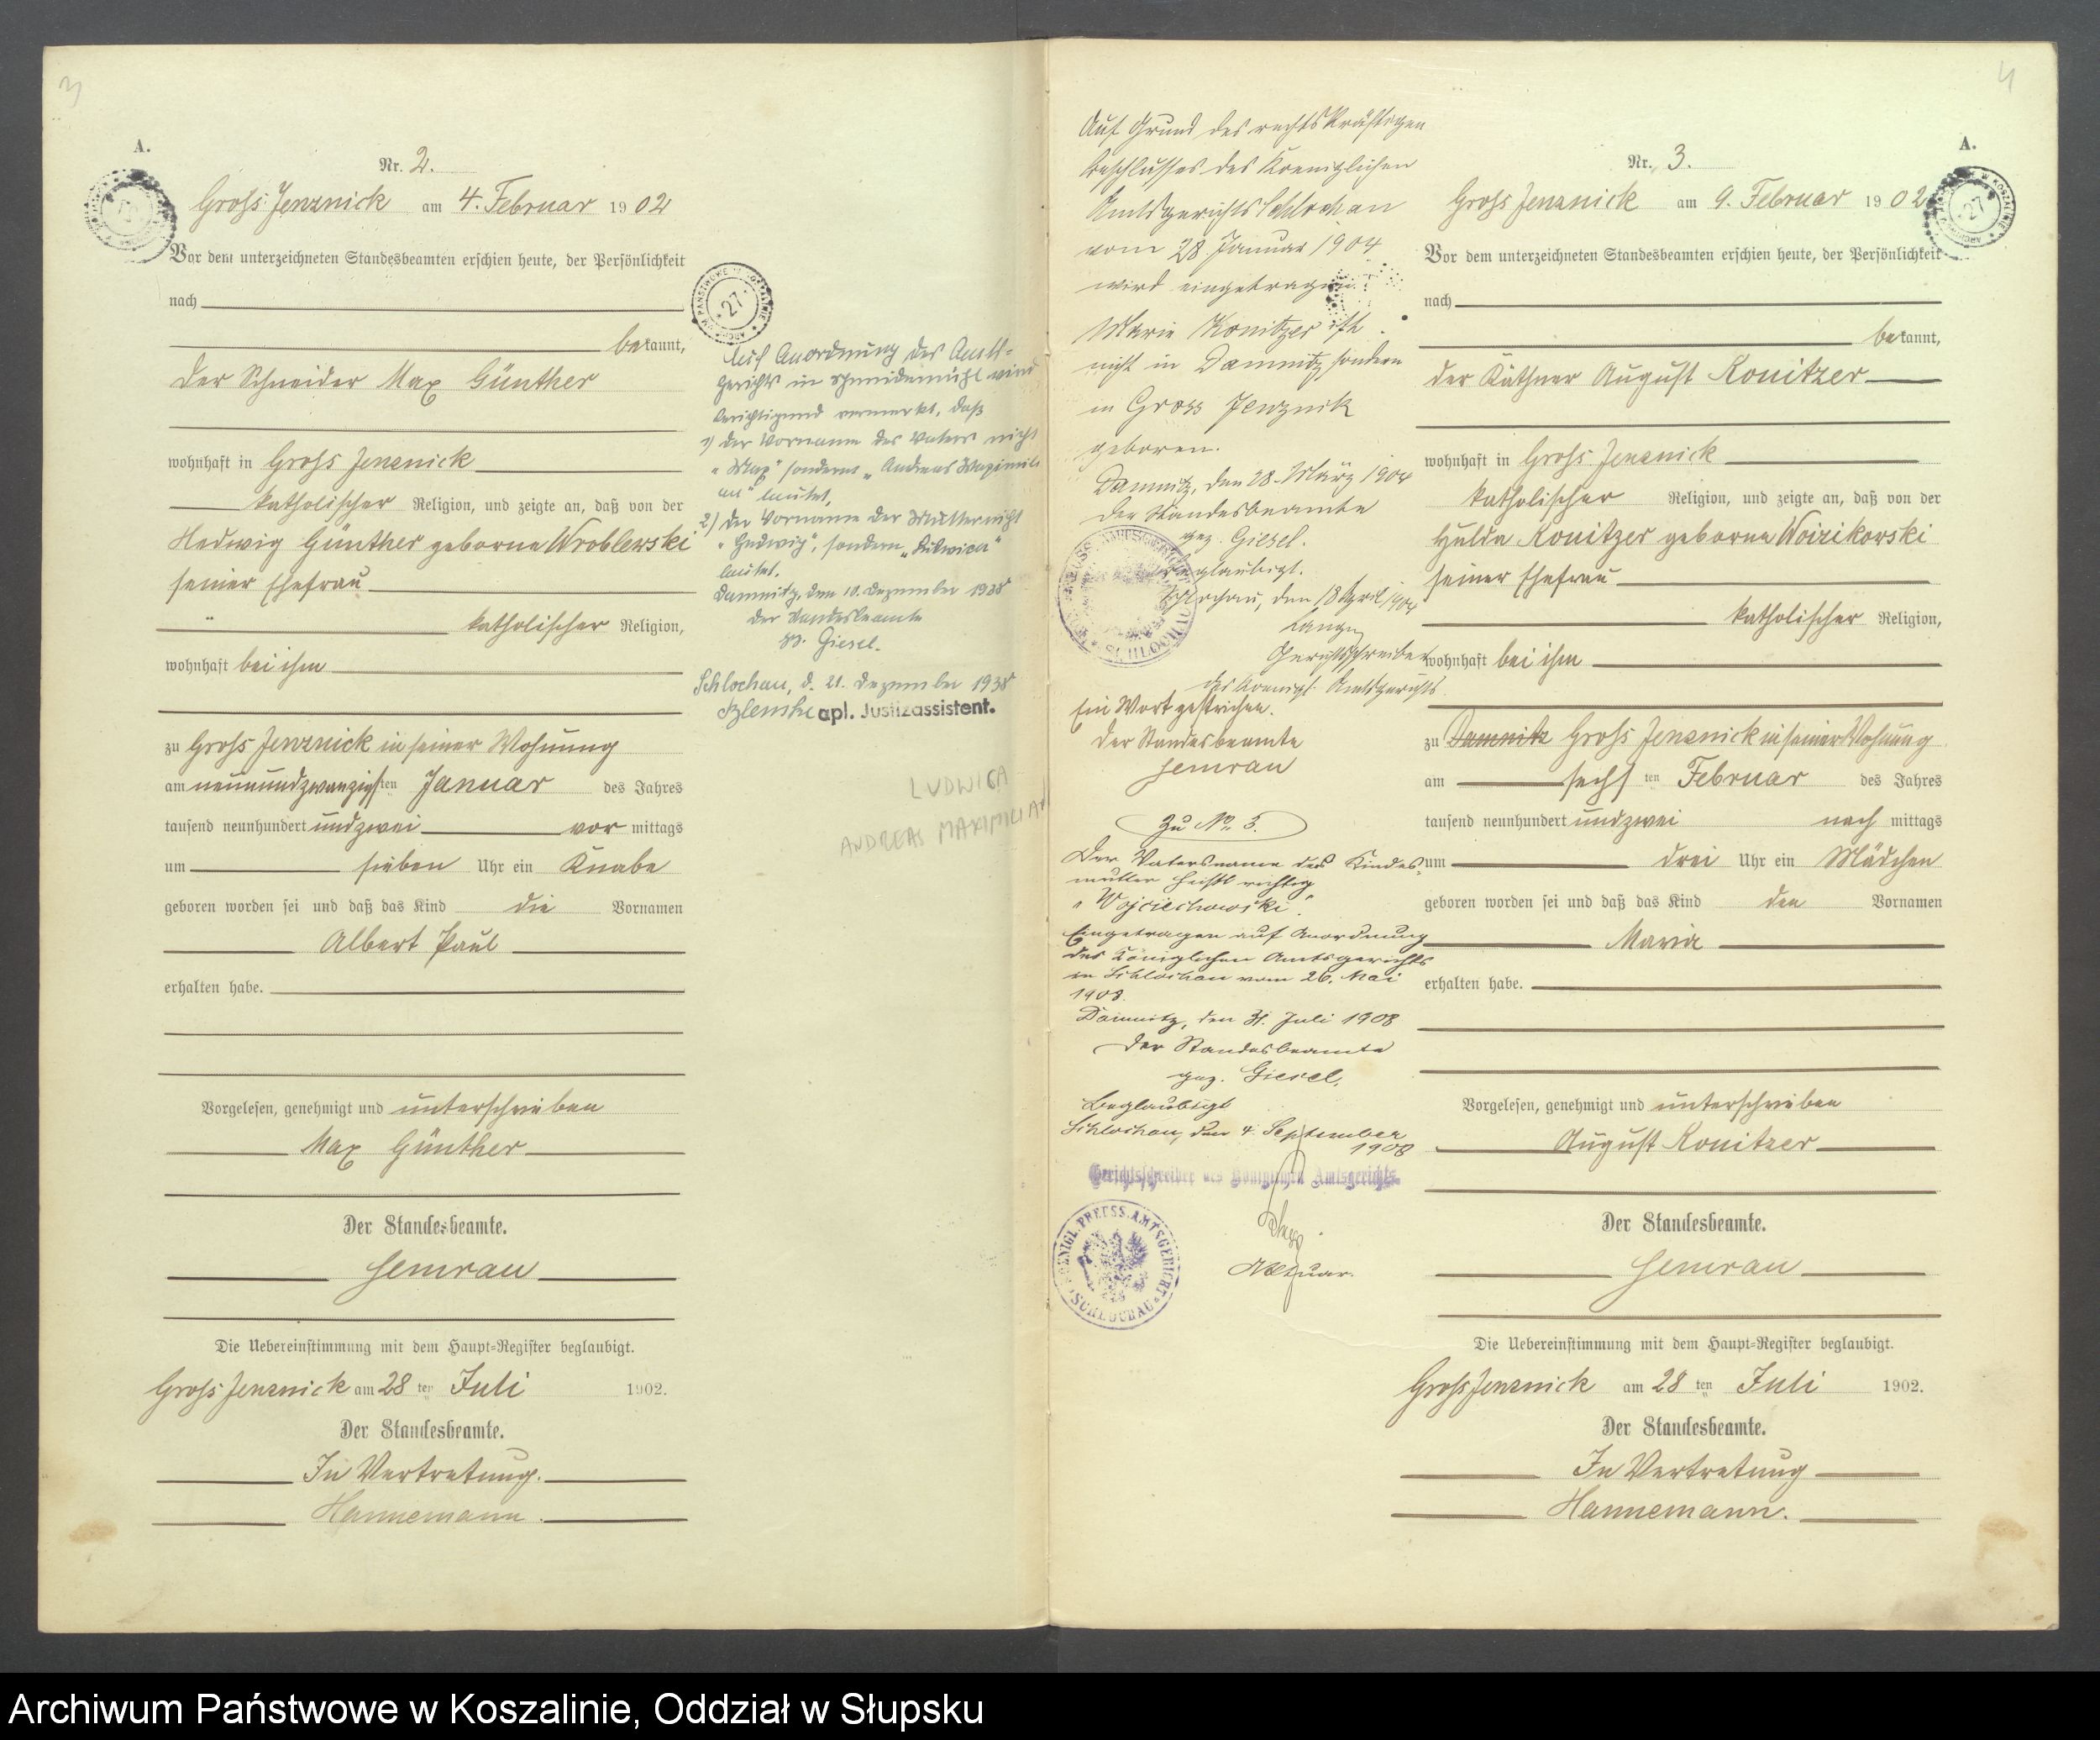 3
A.
Nr. 2.
Gross Jenznick am 4. Februar 1902
Vor dem unterzeichneten Standesbeamten erschien heute, der Persönlichkeit
nach
bekannt,
der Schneider Max Günther
wohnhaft in Gross Jenznick
katholischer Religion, und zeigte an, daß von der
Hedwig Günther geborne Wroblewski
seiner Ehefrau
katholischer Religion,
wohnhaft bei ihm
zu Gross Jenznick in seiner Wohnung
am neunundzwanzigsten Januar des Jahres
tausend neunhundert und zwei vor mittags
um sieben Uhr ein Knabe
geboren worden sei und daß das Kind die Vornamen
Albert Paul
erhalten habe.
Vorgelesen, genehmigt und unterschrieben
Max Günther
Der Standesbeamte.
Semrau
Die Uebereinstimmung mit dem Haupt-Register beglaubigt.
Gross Jenznick am 28 ten Juli 1902.
Der Standesbeamte.
In Vertretung.
Hannemann.
Auf Anordnung des Amts-
gerichts in Schneidemühl wird
berichtigend vermerkt, daß
1) der Vorname des Vaters nicht
"Max" sondern "Andreas Maximili
an" lautet,
2) der Vorname der Mutter nicht
"Hedwig", sondern "Ludwica"
lautet.
Damnitz, den 10. Dezember 1938
Der Standesbeamte
Giesel.
Schlochau, d. 21. Dezember 1938
apl. Justizassistent.
LUDWICA
ANDREAS MAXIMILIAN
4
Auf Grund des rechtskräftigen
Beschlusses des Koeniglichen
Amtsgerichts Schlochau
vom 28 Januar 1904
wird eingetragen:
Marie Konitzer ist
nicht in Damnitz sondern
in Gross Jenznik
geboren.
Damnitz, den 28. März 1904
Der Standesbeamte
gez. Giesel.
Beglaubigt.
Schlochau, den 18 April 1904
Lange
Gerichtsschreiber
des Koenigl. Amtsgerichts.
Ein Wort gestrichen.
Der Standesbeamte
Semrau
Zu No. 3.
Der Vatersname der Kindes-
mutter heißt richtig
"Wojciechowski".
Eingetragen auf Anordnung
des Königlichen Amtsgerichts
in Schlochau vom 26. Mai
1908.
Damnitz, den 31. Juli 1908
Der Standesbeamte
gez. Giesel.
Beglaubigt
Schlochau, den 4. September
1908
Gerichtsschreiber des Königlichen Amtsgerichts.
Aktuar.
KÖNIGL. PREUSS. AMTSGERICHT
SCHLOCHAU
A.
Nr. 3.
Gross Jenznick am 9. Februar 1902
Vor dem unterzeichneten Standesbeamten erschien heute, der Persönlichkeit
nach
bekannt,
der Käthner August Konitzer
wohnhaft in Gross Jenznick
katholischer Religion, und zeigte an, daß von der
Hulda Konitzer geborne Woizikowski
seiner Ehefrau
katholischer Religion,
wohnhaft bei ihm
zu Damnitz Gross Jenznick in seiner Wohnung
am sechsten Februar des Jahres
tausend neunhundert und zwei nach mittags
um drei Uhr ein Mädchen
geboren worden sei und daß das Kind den Vornamen
Maria
erhalten habe.
Vorgelesen, genehmigt und unterschrieben
August Konitzer
Der Standesbeamte.
Semrau
Die Uebereinstimmung mit dem Haupt-Register beglaubigt.
Gross Jenznick am 28 ten Juli 1902.
Der Standesbeamte.
In Vertretung
Hannemann.
Archiwum Państwowe w Koszalinie, Oddział w Słupsku